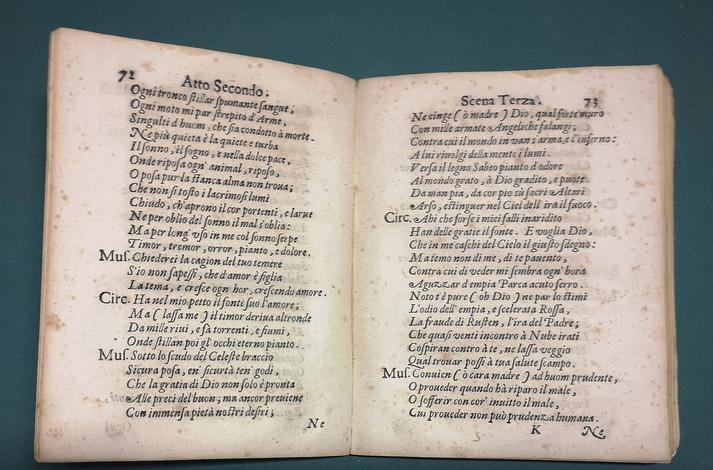 72
Atto Secondo.
Ogni tronco stillar spumante sangue;
Ogni moto mi par strepito d'Arme,
Singulti d'huom, che sia condotto à morte.
Ne più quieta è la quiete e turba
Il sonno, il sogno, e nella dolce pace,
Onde riposa ogn' animal, riposo,
O posa pur la stanca alma non troua;
Che non sì tosto i lacrimosi lumi
Chiudo, ch'aprono il cor portenti, e larue
Ne per oblio del sonno il mal s'oblia:
Ma per long' vso in me col sonno serpe
Timor, tremor, orror, pianto, e dolore.
Mus. Chiederei la cagion del tuo temere
S'io non sapessi, che d'amor è figlia
La tema, e cresce ogn hor, crescendo amore.
Circ. Ha nel mio petto il fonte suo l'amore;
Ma ( lassa me ) il timor deriua altronde
Da mille riui, e fà torrenti, e fiumi,
Onde stillan poi gl' occhi eterno pianto.
Mus. Sotto lo scudo del Celeste braccio
Sicura posa, en' sicurtà ten' godi,
Che la gratia di Dio non solo è pronta
Alle preci del buon; ma ancor preuiene
Con immensa pietà nostri desiri;
Ne
Scena Terza.
73
Ne cinge ( ò madre ) Dio, qual forte muro
Con mille armate Angeliche falangi;
Contra cui il mondo in van s'arma, e l'inferno:
A lui riuolgi della mente i lumi.
Versa il legno Sabeo pianto d'odore
Al mondo grato, à Dio gradito, e puote
Da man pia, da cor pio sù sacri Altari
Arso, estinguer nel Ciel dell' ira il fuoco.
Circ. Ahi che forse i miei falli inaridito
Han delle gratie il fonte. E voglia Dio,
Che in me caschi del Cielo il giusto sdegno:
Ma temo non di me, di te pauento,
Contra cui di veder mi sembra ogn' hora
Aguzzar d'empia Parca acuto ferro.
Noto t'è pure ( oh Dio ) ne par lo stimi
L'odio dell' empia, e scelerata Rossa,
La fraude di Rusten, l'ira del Padre;
Che quasi venti incontro à Nube irati
Cospiran contro à te, ne lassa veggio
Qual trouar possi à tua salute scampo.
Mus. Conuien ( ò cara madre ) ad huom prudente,
O proueder quando hà riparo il male,
O sofferir con cor' inuitto il male,
Cui proueder non può prudenza humana.
K
Ne